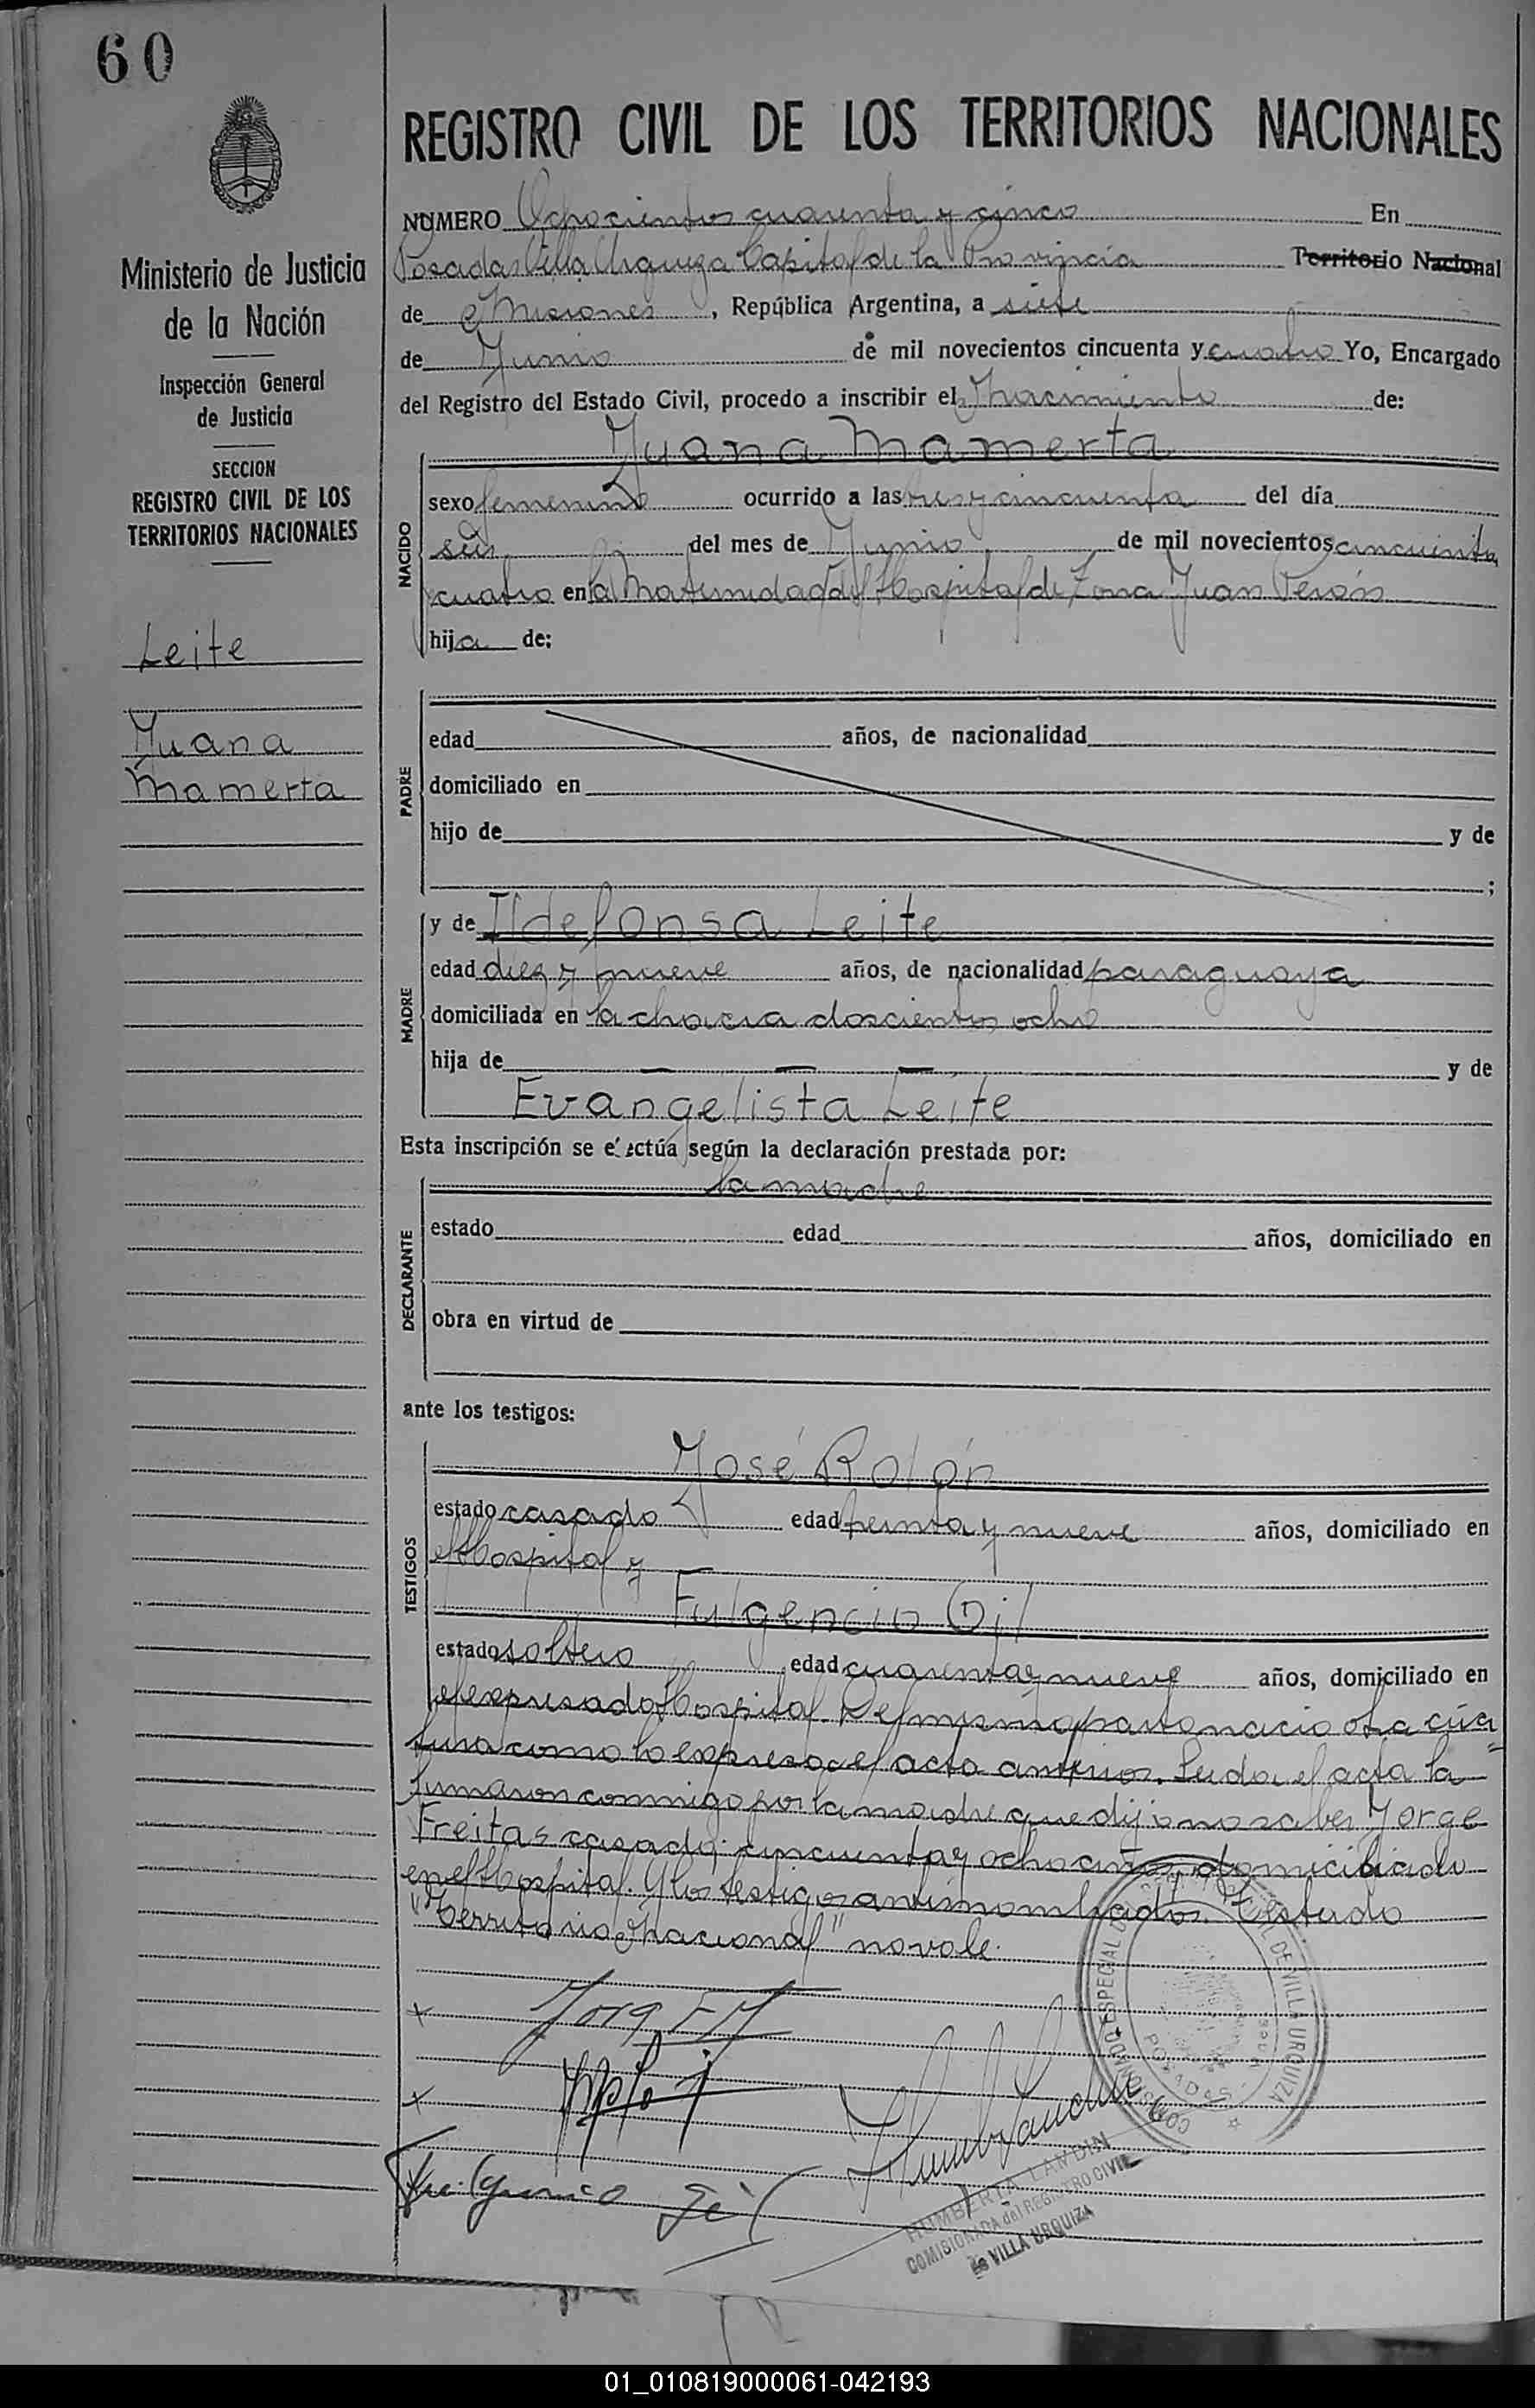 60
REGISTRO CIVIL DE LOS TERRITORIOS NACIONALES
Ministerio de Justicia
de la Nación
Inspección General
de Justicia
SECCION
REGISTRO CIVIL DE LOS
TERRITORIOS NACIONALES
Leite
Juana
Mamerta
NUMERO Ochocientos cuarenta y cinco En
Posadas Villa Urquiza Capital de la Provincia Territorio Nacional
de Misiones, República Argentina, a siete
de Junio de mil novecientos cincuenta y cuatro Yo, Encargado
del Registro del Estado Civil, procedo a inscribir el Nacimiento de:
NACIDO
Juana Mamerta
sexo femenino ocurrido a las tres y cincuenta del día
seis del mes de Junio de mil novecientos cincuenta
y cuatro en la Maternidad del Hospital de Zona Juan Perón
hija de:
PADRE
edad años, de nacionalidad
domiciliado en
hijo de y de
;
MADRE
y de Ildefonsa Leite
edad diez y nueve años, de nacionalidad paraguaya
domiciliada en la chacra doscientos ocho
hija de — — — y de
Evangelista Leite
Esta inscripción se efectúa según la declaración prestada por:
DECLARANTE
la madre
estado edad años, domiciliado en
obra en virtud de
ante los testigos:
TESTIGOS
José Rolón
estado casado edad treinta y nueve años, domiciliado en
el Hospital y
Fulgencio Gil
estado soltero edad cuarenta y nueve años, domiciliado en
el expresado Hospital. Del mismo parto nació otra cria
tura como lo expresa el acta anterior. Leida el acta la
firmaron conmigo por la madre que dijo no saber Jorge
Freitas casado, cincuenta y ocho años, domiciliado
en el Hospital. Y los testigos antes nombrados. Testado
"Territorio Nacional" no vale.
x
x
Fulgencio Gil
ESPECIAL DE VILLA URQUIZA
POSADAS
HUMBERTA LANDIN
COMISIONADA del REGISTRO CIVIL
de VILLA URQUIZA
01_010819000061-042193